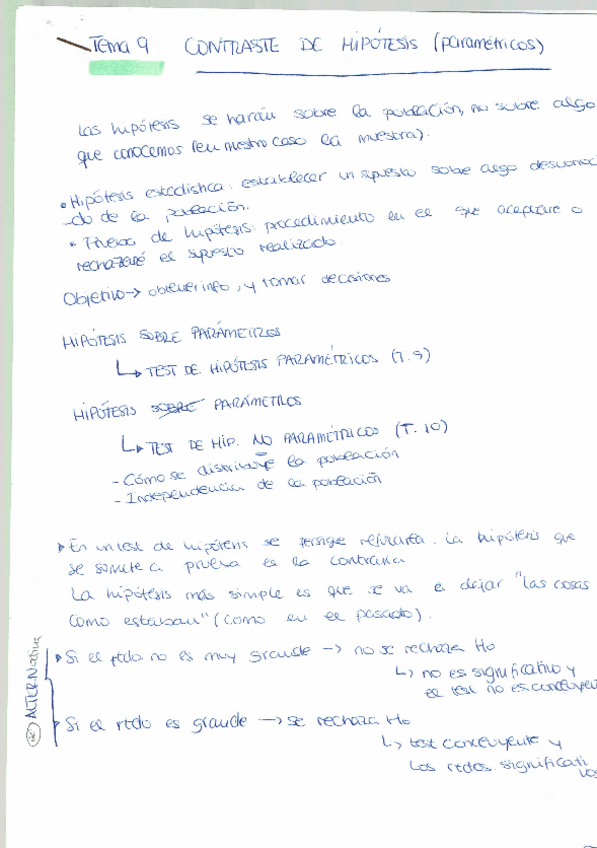 Tema 9 CONTRASTE DE HIPÓTESIS (paramétricos)
Las hipótesis se harán sobre la población, no sobre algo
que conocemos (en nuestro caso la muestra).
• Hipótesis estadística: establecer un supuesto sobre algo desconoci
-do de la población.
• de hipótesis: procedimiento en el que aceptaré o
rechazaré el supuesto realizado.
Objetivo → obtener info, y tomar decisiones
HIPÓTESIS SOBRE PARÁMETROS
↳ TEST DE HIPÓTESIS PARAMÉTRICOS (T.9)
HIPÓTESIS SOBRE PARÁMETROS
↳ TEST DE HIP. NO PARAMÉTRICOS (T.10)
- Cómo se distribuye la población
- Independencia de la población
▸ En un test de hipótesis se persigue refutarla. La hipótesis que
se somete a prueba es la contraria
La hipótesis más simple es que se va a dejar "las cosas
como estaban" (como en el pasado).
ALTERNativa
▸ Si el rtdo no es muy grande → no se rechaza Ho
↳ no es significativo y
el test no es concluyen
▸ Si el rtdo es grande → se rechaza Ho
↳ test concluyente y
los rtdos significati
vos